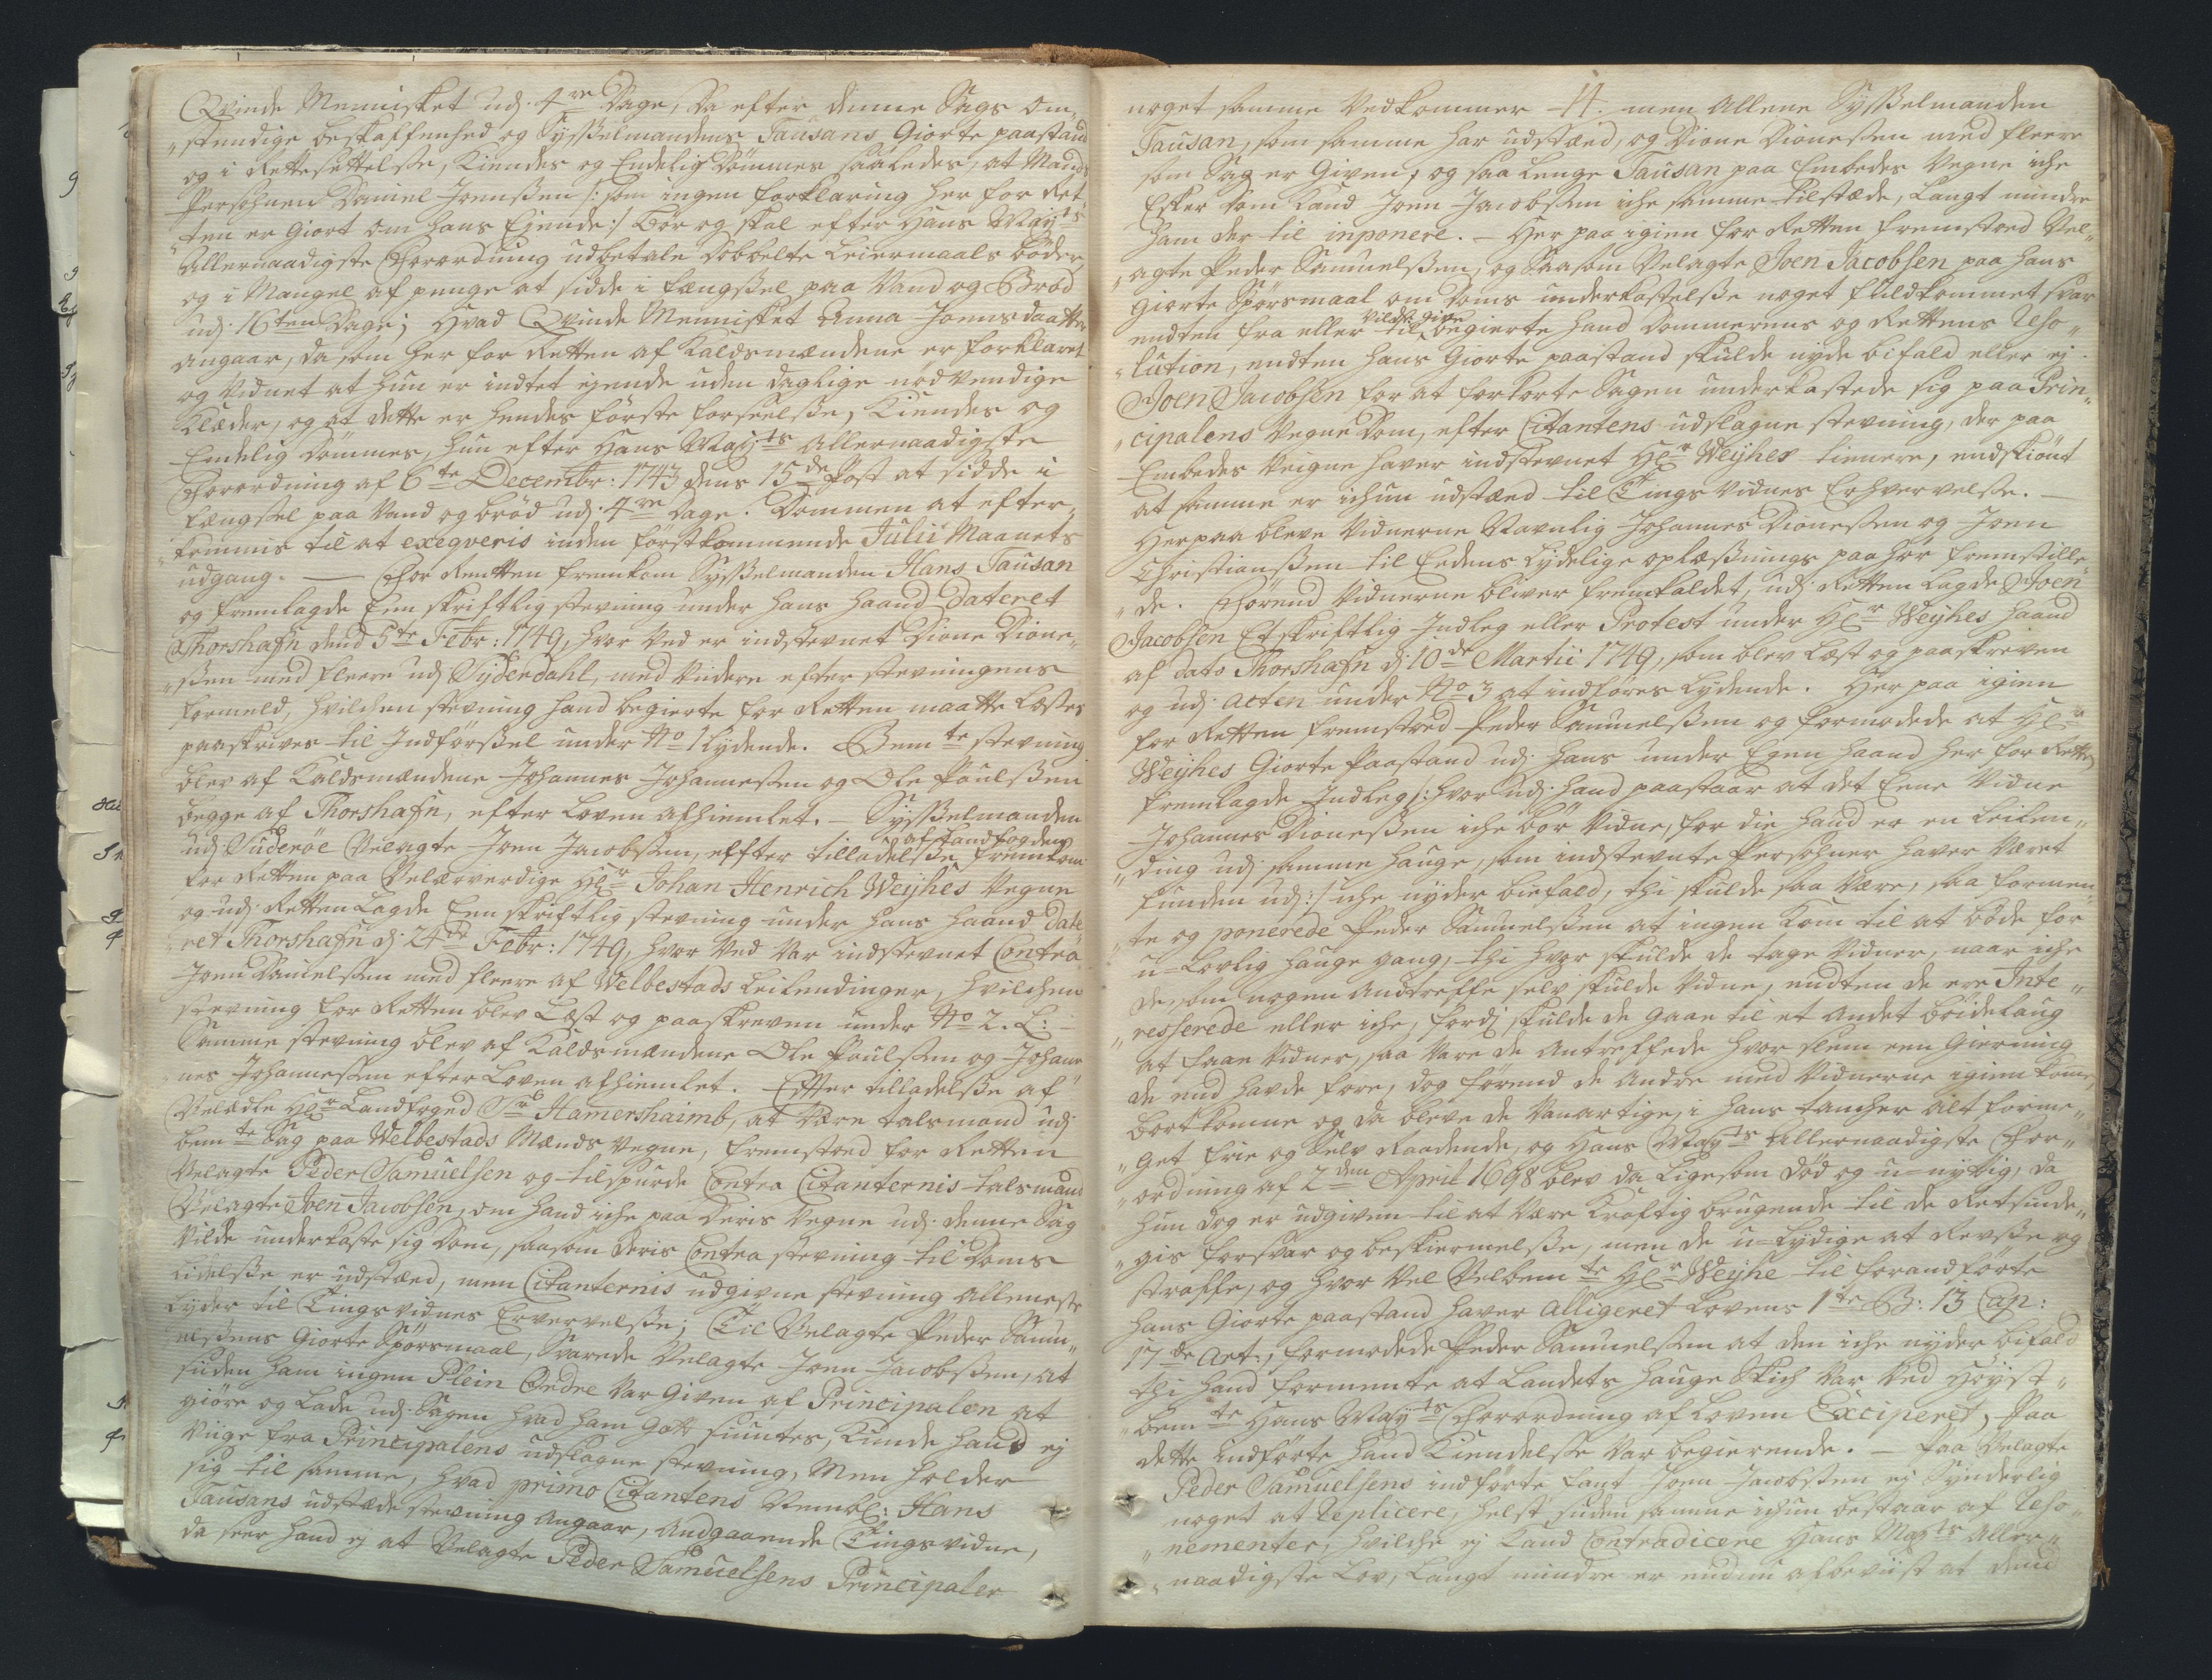 Qvinde Mennisket udj 4re Dage, Da efter denne Sags om„
„stendige beskaffenhed og Sysselmandens Tausans Giorte paastand
og i Rettesettelsse, Kiendes og Endelig Dömmes saaledes, at Mands
Persohnen Daniel Joensßen /: som ingen forklaring her for Ret„
„ten er Giort om hans Ejende :/ Bör og skal efter Hans Mayts
Allernaadigste Forordning udbetale Dobbelte Leiermaals böder,
og i Mangel af penge at sidde i fængssel paa Vand og Bröd
udj 16ten Dage; Hvad Qvinde Mennisket Anna Joensdaatter
angaar, da som her for Retten af Kaldsmændene er forklaret
og Vidnet at hun er indtet ejende uden daglige nödvendige
Klæder, og at dette er hendes förste forseelsse, Kiendes og
Endelig Dömmes, hun efter Hans Mayts Allernaadigste
Forordning af 6te Decembr: 1743 dens 15de Post at sidde i
fængsel paa Vand og bröd udj 4re Dage. Dommen at efter„
kommis til at exeqveris inden förstkommende Julii Maanets
udgang. — For Retten fremkom Sysselmanden Hans Tausan
og fremlagde Een skriftlig stevning under hans haand Dateret
Thorshafn dend 5te Febr: 1749, hvor ved er indstevnet Dione Dione„
„ssen med fleere udj Syderdahl, med Videre efter stevningens
formeld, hvilchen stevning hand begierte for Retten maatte læses
paaskrives til Indförssel under No 1 lydende. Bemte stevning
blev af Kaldsmændene Johannes Johannessen og Ole Poulssen
begge af Thorshafn, efter Loven afhiemlet. — Sysselmanden
udj Suderöe Velagte Joen Jacobssen, effter tilladelsse af Landfogden fremkom
for Retten paa Velærverdige Hr Johan Henrich Weyhes Vegne
og udj Retten Lagde Een skriftlig stevning under hans haand Date„
„ret Thorshafn d: 24de Febr: 1749, hvor ved var indstevnet Contra
Joen Danielssen med fleere af Welbestads Leilendinger, hvilchen
stevning for Retten blev Læst og paaskreven under No 2. L: —
Samme stevning blev af Kaldsmændene Ole Poulssen og Johan„
nes Johannessen efter Loven afhiemlet. Efter tilladelsse af
Velædle Hr Landfoged Sr Hamershaimb, at være talsmand udj
bemte Sag paa Welbestads Mænds Vegne, fremstoed for Retten
Velagte Peder Samuelsen og tilspurde Contra Citanternis talsmand
Velagte Joen Jacobsen, om hand iche paa deris Vegne udj denne Sag
Vilde underkaste sig Dom, saasom deris Contra stevning til Doms
Lidelsse er udstæd, men Citanternis udgivne stevning alleneste
Lyder til Tingsvidnes Ervervelsse; Til Velagte Peder Samu„
„elssens Giorte Spörsmaal, Svarede Velagte Joen Jacobssen, at
siden ham ingen Plein Ordre var Given af Principalen at
giöre og Lade udj Sagen hvad ham Gott siuntes, Kunde hand ej
Viige fra Principalens udstagne stevning, Men holder
sig til samme, hvad primo Citantens Hans
Tausans udstæde stevning angaar, andgaaende Tingsvidne,
da seer hand ej at Velagte Peder Samuelsens Principaler
noget samme Vedkommer 4. men allene Sysselmanden
Tausan, som samme har udstæd, og Dione Dionessen med fleere
som Sag er Given, og saa lenge Tausan paa Embedes Vegne iche
Esker Dom Kand Joen Jacobssen iche samme tilstæde, Langt mindre
ham der til inponere. — Her paa igien for Retten fremstoed Vel„
„agte Peder Samuelssen, og Saasom Velagte Joen Jacobsen paa hans
Giorte Spörsmaal om Doms underkastelsse noget fuldkommet svar
endten fra eller til vilde give begierte hand Dommerens og Rettens Reso„
„lution, endten hans Giorte paastand skulde nyde bifald eller ej.
Joen Jacobsen for at forkorte Sagen underkastede sig paa Prin„
„cipalens Vegne Dom, efter Citantens udstagne stevning, der paa
Embedes Veigne haver indstevnet Hr Weyhes tienere, endskiönt
at samme er ichun udstæd til Tings Vidnes Erhvervelsse. —
Herpaa bleve Vidnerne Navnlig Johannes Dionessen og Joen
Christianssen til Eedens Lydelige oplæssnings paahör fremstille„
„de. Förend Vidnerne bliver fremkaldet, udj Retten Lagde Joen
Jacobsen Et skriftlig Indleg eller Protest under Hr Weyhes haand
af dato Thorshafn d: 10de Martii 1749, som blev Læst og paaskreven
og udj acten under No 3 at indföres Lydende. Her paa igien
for Retten fremstoed Peder Samuelssen og formodede at Hr
Weyhes Giorte Paastand udj hans under Egen haand her for Retten
fremlagde Indleg /: hvor udj hand paastaar at det Eene Vidne
Johannes Dionessen iche bör Vidne, for die hand er en Leilen„
„ding udj samme hauge, som indstevnte Persohner haver været
funden udj :/ iche nyder biefald, thi skulde saa være, saa formen„
„te og ponerede Peder Samuelssen at ingen kom til at böde for
u=Lovlig hauge gang, thi hvor skulde de tage Vidner, naar iche
de, som nogen Andtreffe selv skulde Vidne, endten de ere Inte„
„resserede eller iche, fordj skulde de Gaae til et andet böidelaug
at faae Vidner, saa vare de Antreffede hvor slem een Gierning
de end havde fore, dog förend de Andre med Vidnerne igien kom,
bortkomne og da bleve de Vanartige, i hans tancher alt forme„
„get frie og Selv Raadende, og Hans Mayts Allernaadigste For„
„ordning af 2den April 1698 blev da Ligesom död og u=nyttig, da
hun dog er udgiven til at være Kraftig brugende til de Retsinde„
„gis forsvar og beskiermelsse, men de u=lydige at Revsse og
straffe, og hvor vel Velbemte Hr Weyhe til forandförte
hans Giorte paastand haver alligeret Lovens 1te B: 13 Cap:
17de Art:, formodede Peder Samuelssen at den iche nyder bifald
thi hand formente at Landets hauge Skich var ved Höyst„
„bemte Hans Mayts Forordning af Loven Exciperet, paa
dette indförte hand Kiendelsse var begierende. — Paa Velagte
Peder Samuelsens indförte fant Joen Jacobssen ej Synderlig
noget at Replicere, helst siden samme ichun bestaar af Reso„
„nementer, hvilche ej Kand Contradicere Hans Mayts Aller„
„naadigste Lov, Langt mindre er endnu afbeviist at dend